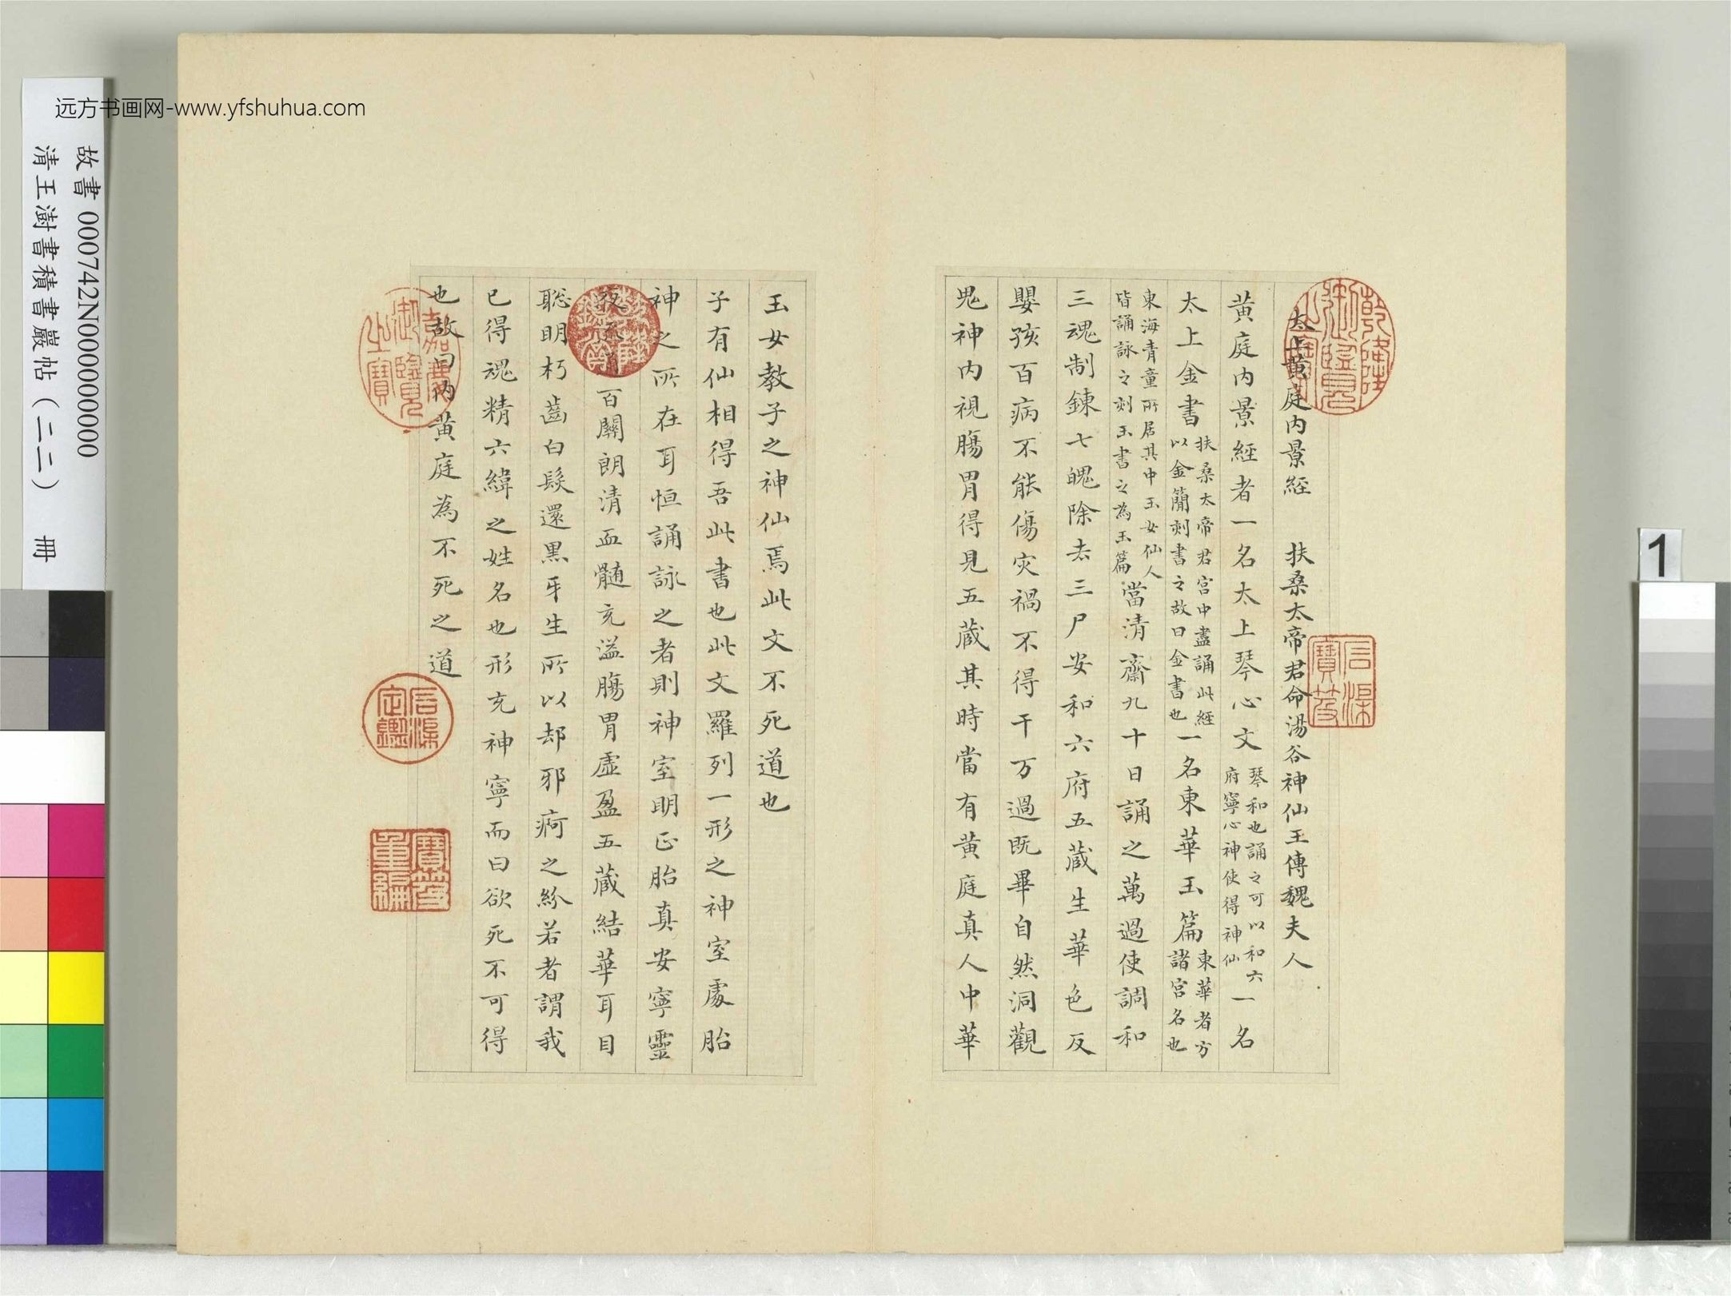 远方书画网-www.yfshuhua.com
故書 000742N000000000
清王澍書積書巖帖（二二） 冊
1
太上黃庭內景經 扶桑太帝君命湯谷神仙王傳魏夫人
黃庭內景經者一名太上琴心文琴和也誦之可以和六府寧心神使得神仙一名
太上金書扶桑太帝君宮中盡誦此經以金簡刻書之故曰金書也一名東華玉篇東華者方諸宮名也
東海青童所居其中玉女仙人皆誦詠之刻玉書之為玉篇當清齋九十日誦之萬過使調和
三魂制鍊七魄除去三尸安和六府五藏生華色反
嬰孩百病不能傷灾禍不得干万過既畢自然洞觀
鬼神內視腸胃得見五藏其時當有黃庭真人中華
玉女教子之神仙焉此文不死道也
子有仙相得吾此書也此文羅列一形之神室處胎
神之所在耳恒誦詠之者則神室明正胎真安寧靈
液流通百關朗清血髓充溢腸胃虛盈五藏結華耳目
聡明朽齒白髮還黑牙生所以却邪痾之紛若者謂我
已得魂精六緯之姓名也形充神寧而曰欲死不可得
也故曰內黃庭為不死之道
乾隆御覽之寶
石渠寶笈
嘉慶御覽之寶
石渠定鑑
寶笈重編